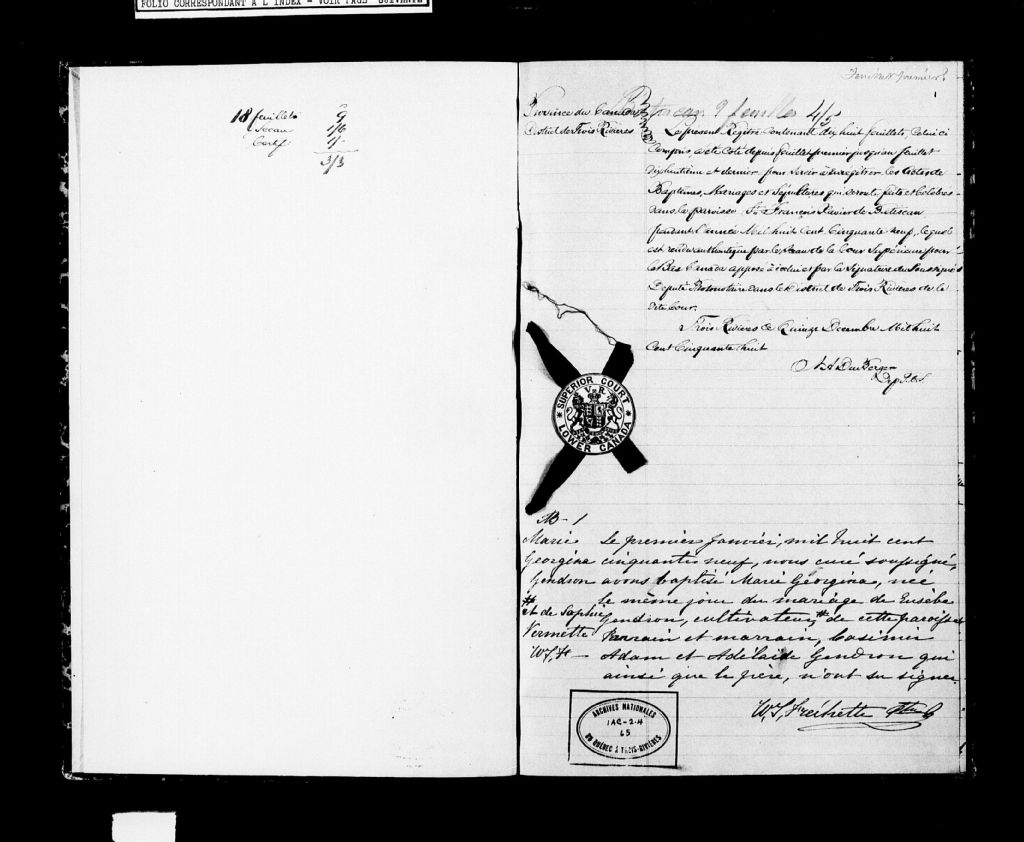 FOLIO CORRESPONDANT A L'INDEX - VOIR PAGE SUIVANTE
18 feuillets 9
Sceau 1/6
Certif. 1/-
3/3
Feuillet Premier
1
Province du Canada
District de Trois Rivières
9 feuilles 4/5
Le présent Registre Contenant dix huit feuillets, Celui ci
Compris, a été Coté depuis feuillet premier jusqu'au feuillet
dix huitième et dernier pour servir à enregistrer les Actes de
Baptêmes, Mariages et Sépultures qui seront faits et Célébrés
dans la paroisse St. François Xavier de Batiscan
pendant l'année Mil huit Cent Cinquante neuf, lequel
est rendu authentique par le Sceau de la Cour Supérieure pour
le Bas Canada apposé à icelui et par la Signature du Soussigné
Député Protonotaire dans le District de Trois Rivières de la
dite Cour.
Trois Rivières Ce Quinze Décembre Mil huit
Cent Cinquante huit
Dep P.C.S.
SUPERIOR COURT
V R
LOWER CANADA
B - 1
Marie
Georgina
Gendron
#
et de Sophie
Vermette
W,S,F
Le premier Janvier, mil huit cent
cinquante neuf, nous curé soussigné,
avons baptisé Marie Georgina, née
le même jour du mariage de Eusèbe
Gendron, cultivateur, # de cette paroisse
Parrain et marrain, Casimir
Adam et Adélaïde Gendron qui
ainsi que le père, n'ont su signer.
W,S, Fréchette Ptre
ARCHIVES NATIONALES
1AC-2.4
65
DU QUÉBEC À TROIS-RIVIÈRES